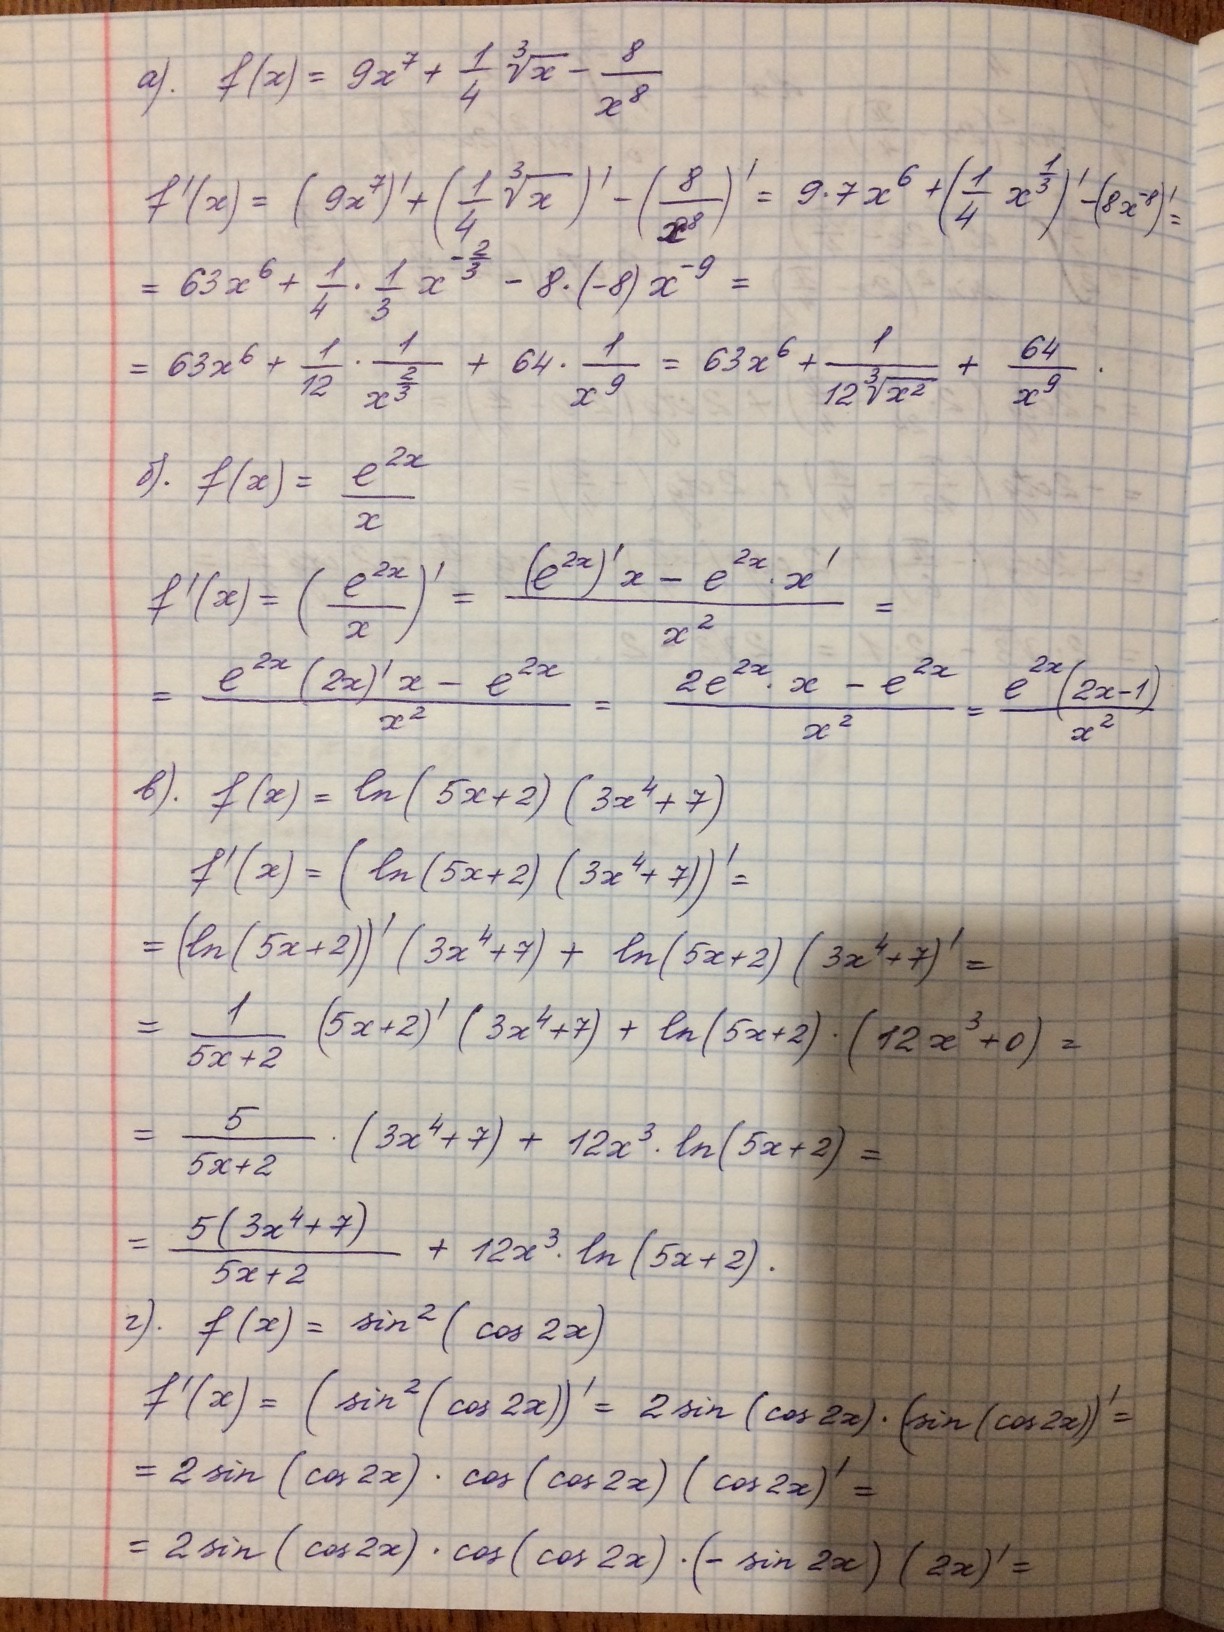 а). f(x) = 9x⁷ + 1/4 ∛x − 8/x⁸
f'(x) = (9x⁷)' + (1/4 ∛x)' − (8/x⁸)' = 9·7x⁶ + (1/4 x^(1/3))' − (8x⁻⁸)' =
= 63x⁶ + 1/4 · 1/3 x^(−2/3) − 8·(−8)x⁻⁹ =
= 63x⁶ + 1/12 · 1/x^(2/3) + 64 · 1/x⁹ = 63x⁶ + 1/(12∛x²) + 64/x⁹ .
б). f(x) = e^(2x)/x
f'(x) = (e^(2x)/x)' = ((e^(2x))'x − e^(2x)·x')/x² =
= (e^(2x)(2x)'x − e^(2x))/x² = (2e^(2x)·x − e^(2x))/x² = e^(2x)(2x−1)/x²
в). f(x) = ln(5x+2)(3x⁴+7)
f'(x) = (ln(5x+2)(3x⁴+7))' =
= (ln(5x+2))'(3x⁴+7) + ln(5x+2)(3x⁴+7)' =
= 1/(5x+2) (5x+2)'(3x⁴+7) + ln(5x+2)·(12x³+0) =
= 5/(5x+2) · (3x⁴+7) + 12x³·ln(5x+2) =
= 5(3x⁴+7)/(5x+2) + 12x³·ln(5x+2).
г). f(x) = sin²(cos2x)
f'(x) = (sin²(cos2x))' = 2sin(cos2x)·(sin(cos2x))' =
= 2sin(cos2x)·cos(cos2x)(cos2x)' =
= 2sin(cos2x)·cos(cos2x)·(−sin2x)(2x)' =